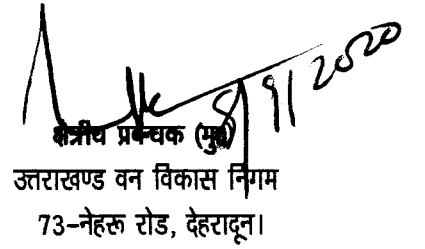 8/9/2020
क्षेत्रीय प्रबन्धक (मु0)
उत्तराखण्ड वन विकास निगम
73-नेहरू रोड, देहरादून।